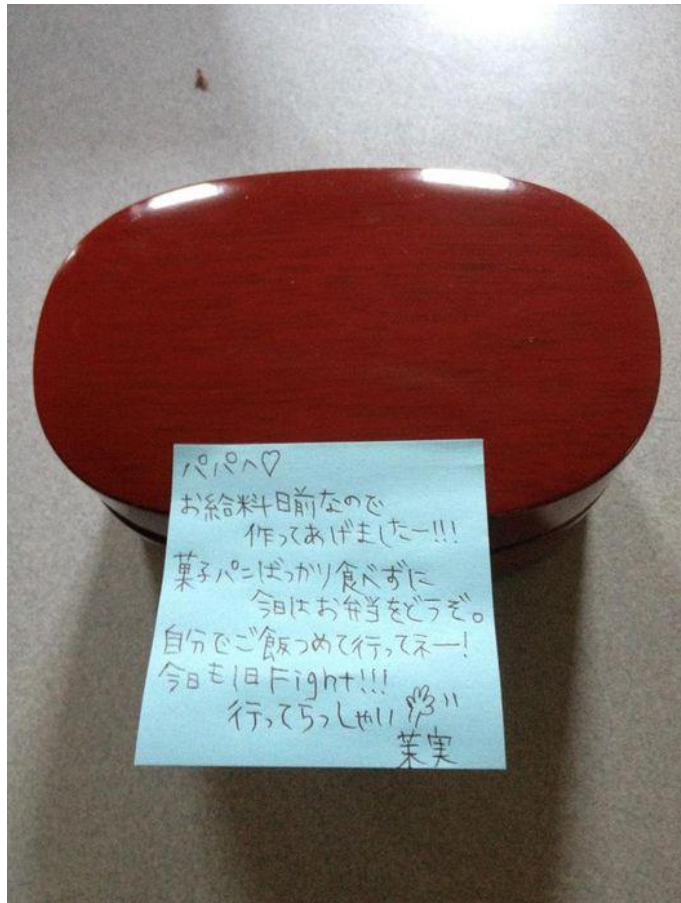 パパへ♡
お給料日前なので
作ってあげましたー!!!
菓子パンばっかり食べずに
今日はお弁当をどうぞ。
自分でご飯つめて行ってネー!
今日も1日Fight!!!
行ってらっしゃい
茉実